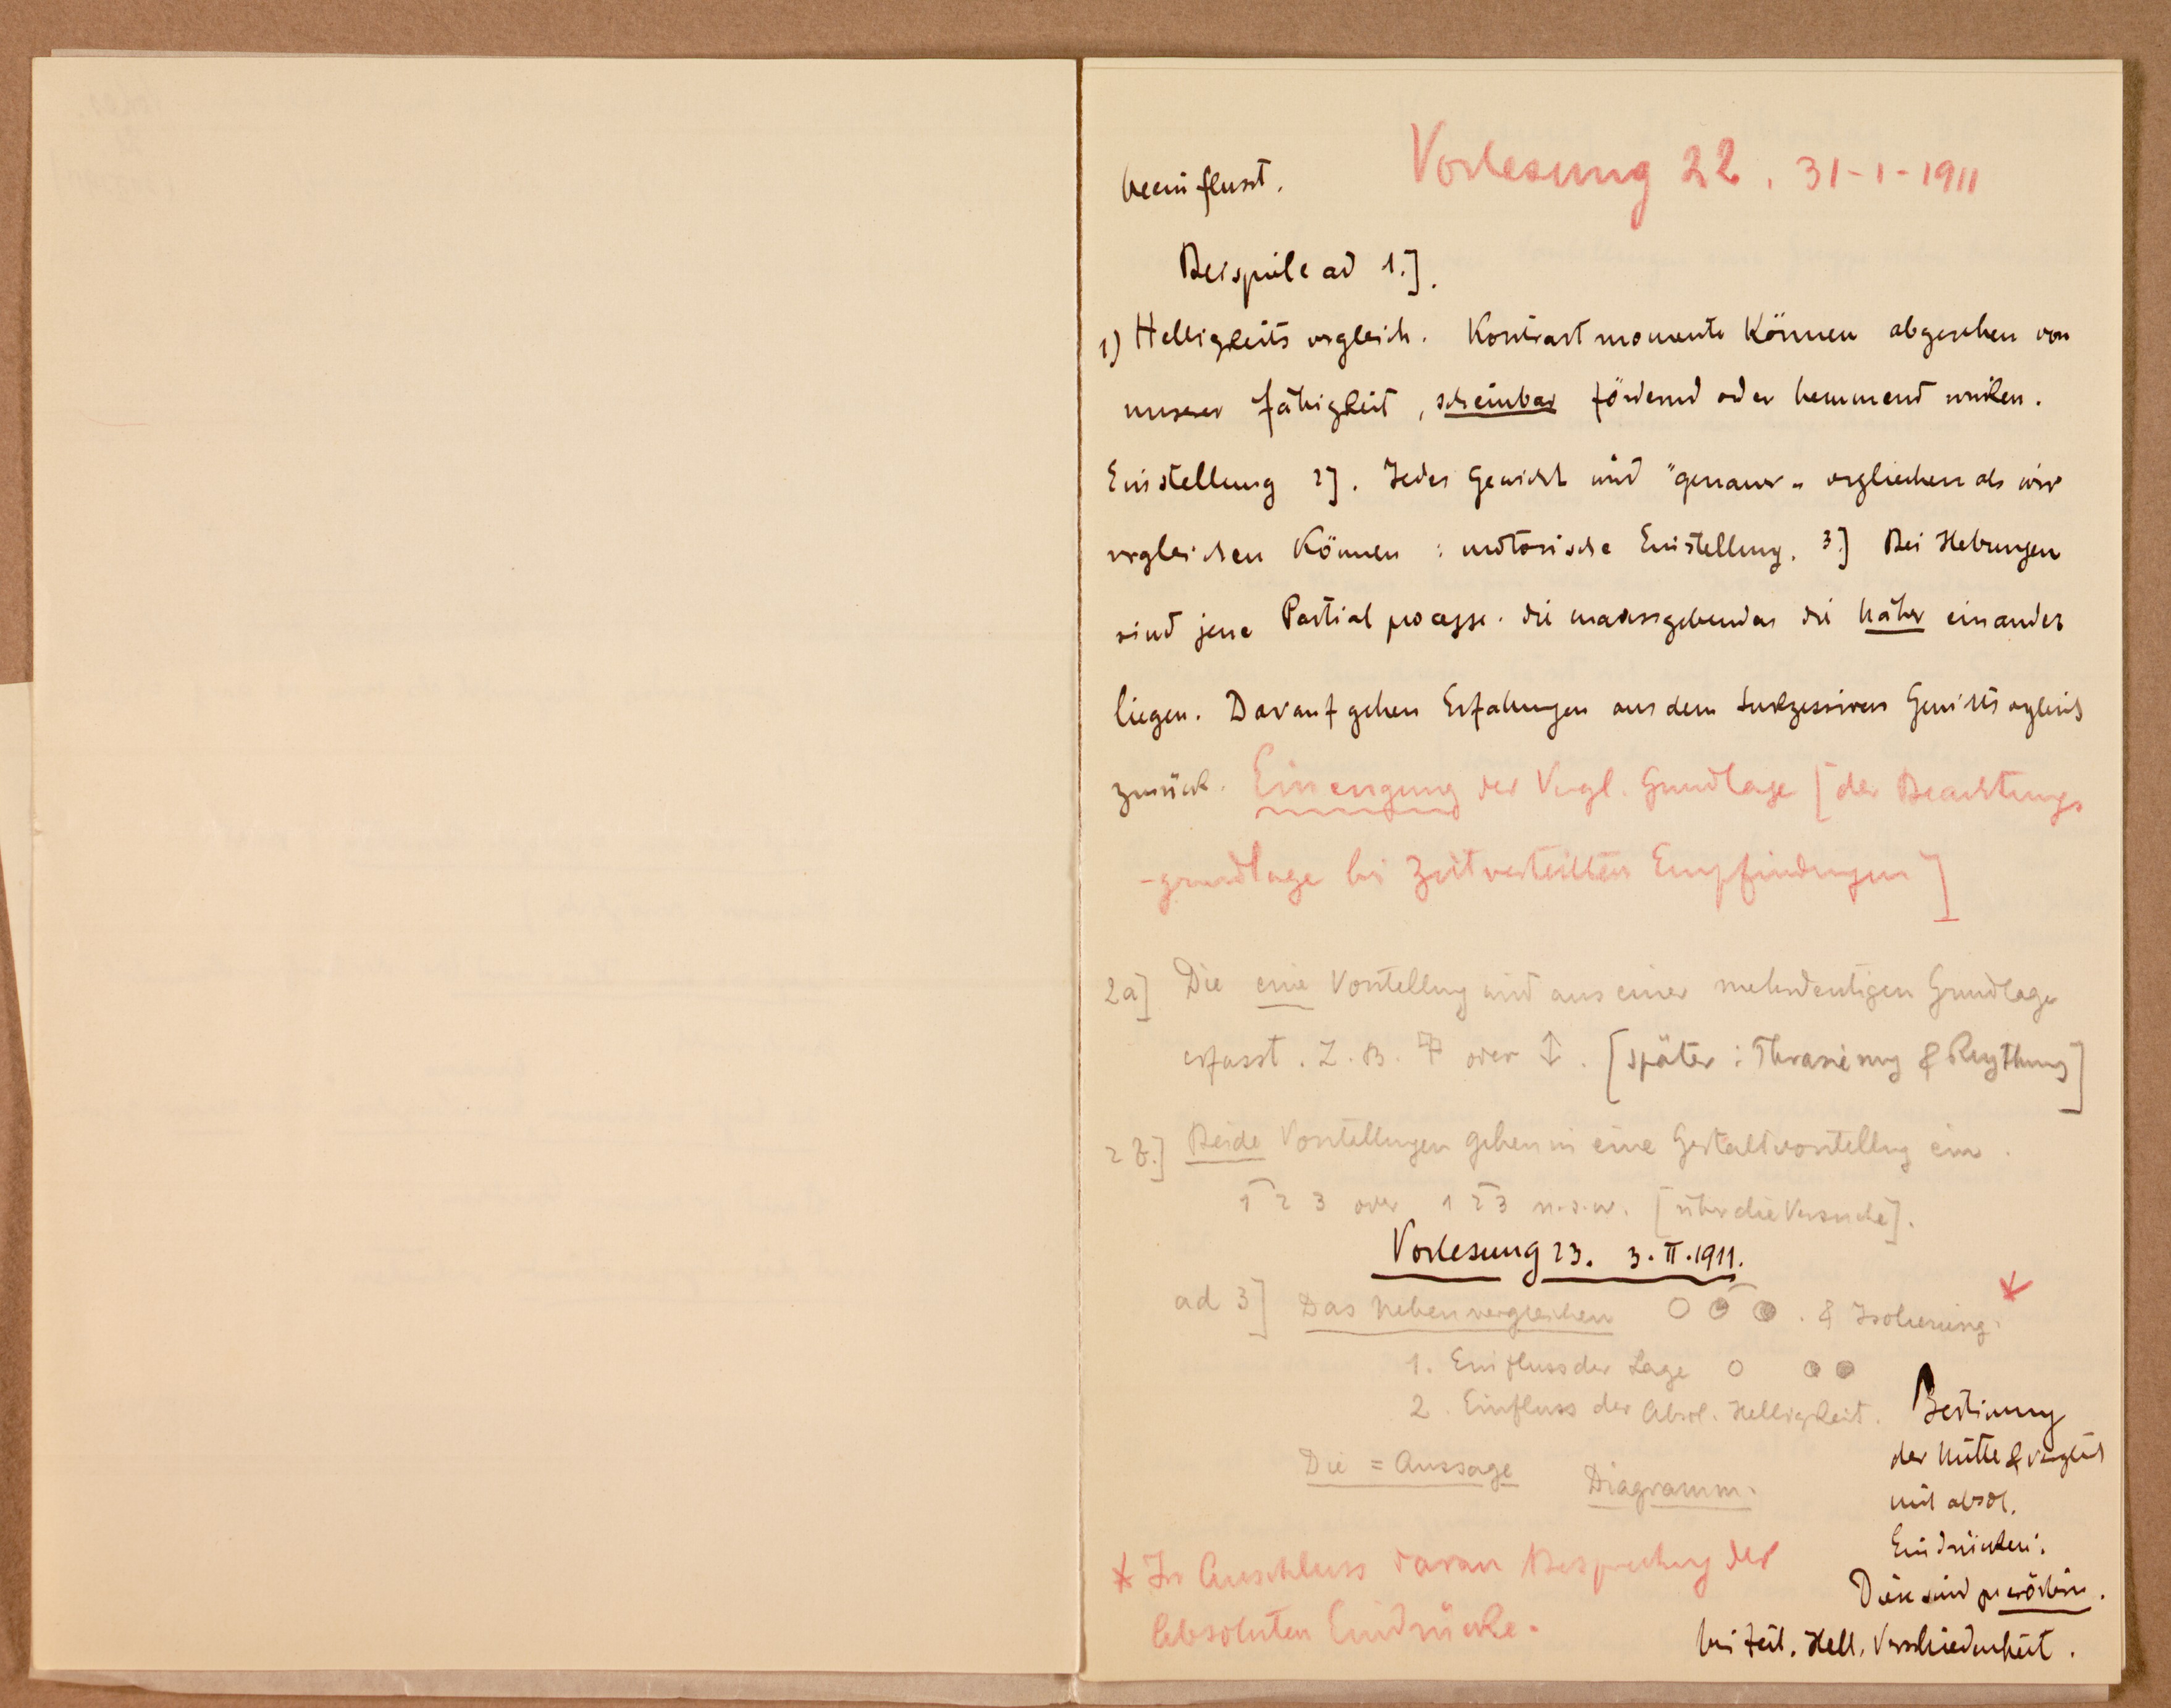 Vorlesung 22. 31-1-1911
beeinflusst.
Beispiele ad 1.].
1) Helligkeits vrgleich. Kontrastmomente können abgesehen von
unserer Fähigkeit, scheinbar fördernd oder hemmend wirken.
Einstellung 2]. Jedes Gewicht wird "genauer" vrglichen als wir
vrgleichen können: motorische Einstellung. 3.] Bei Hebungen
sind jene Partialprozesse die maassgebenden die näher einander
liegen. Darauf gehen Erfahrungen aus dem sukzessiven Gewichtsvrgleich
zurück. Einengung der Vergl. Grundlage [der Beachtungs
-grundlage bei Zeitverteilten Empfindungen]
2a] Die eine Vorstellung wird aus einer mehrdeutigen Grundlage
erfasst. Z.B. oder ↕. [später: Phrasierung & Rhythmus]
2 b.] Beide Vorstellungen gehen in eine Gestaltvorstellung ein.
1 2 3 oder 1 2 3 u.s.w. [über die Versuche].
Vorlesung 23. 3.II.1911.
ad 3] Das Nebenvergleichen . & Isolierung.
1. Einfluss der Lage
2. Einfluss der Absol. Helligkeit.
Die = Aussage Diagramm.
der Mitte & Vergleich
mit absol.
Eindrücken.
Diese sind zu erörtern.
bei Zeit. Hell. Verschiedenheit.
* Im Anschluss daran Besprechung der
Absoluten Eindrücke.